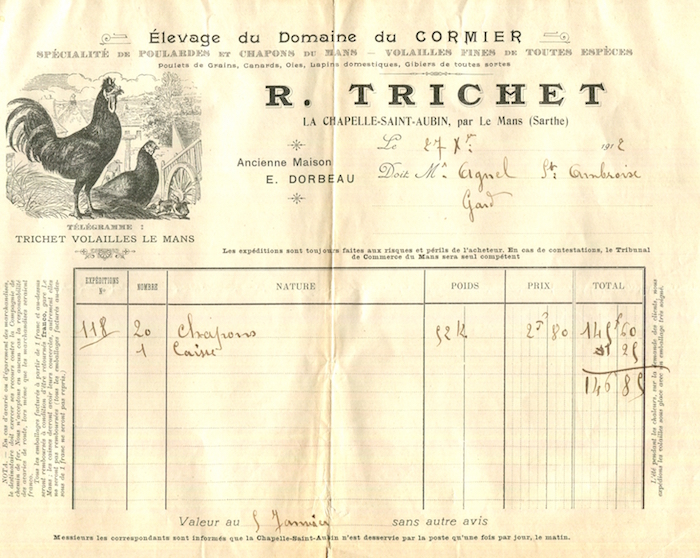 Élevage du Domaine du CORMIER
SPÉCIALITÉ DE POULARDES ET CHAPONS DU MANS — VOLAILLES FINES DE TOUTES ESPÈCES
Poulets de Grains, Canards, Oies, Lapins domestiques, Gibiers de toutes sortes
R. TRICHET
LA CHAPELLE-SAINT-AUBIN, par Le Mans (Sarthe)
Le 27 Xbre 1912
Ancienne Maison
E. DORBEAU
Doit Mr Agnel St Ambroise
Gard
TÉLÉGRAMME :
TRICHET VOLAILLES LE MANS
Les expéditions sont toujours faites aux risques et périls de l'acheteur. En cas de contestations, le Tribunal
de Commerce du Mans sera seul compétent
EXPÉDITIONS No NOMBRE NATURE POIDS PRIX TOTAL
118 20 Chapons 52 k 2 80 145 60
1 Caisse 1 25
146 85
NOTA. — En cas d'avarie ou d'égarement des marchandises,
le destinataire doit exercer ses recours contre la Compagnie de
chemin de fer. Nous n'acceptons en aucun cas la responsabilité
des avaries de route, lors même que les marchandises seraient
franco.
Tous les emballages facturés à partir de 1 franc et au-dessus
seront remboursés à condition d'être retournés franco, gare Le
Mans ; les caisses devront avoir leurs couvercles, autrement elles
ne seront pas remboursées (tous les emballages facturés au-des-
sous de 1 franc ne seront pas repris.
L'été pendant les chaleurs, sur la demande des clients, nous
expédions les volailles sous glace avec un emballage très soigné.
Valeur au 5 Janvier sans autre avis
Messieurs les correspondants sont informés que la Chapelle-Saint-Aubin n'est desservie par la poste qu'une fois par jour, le matin.